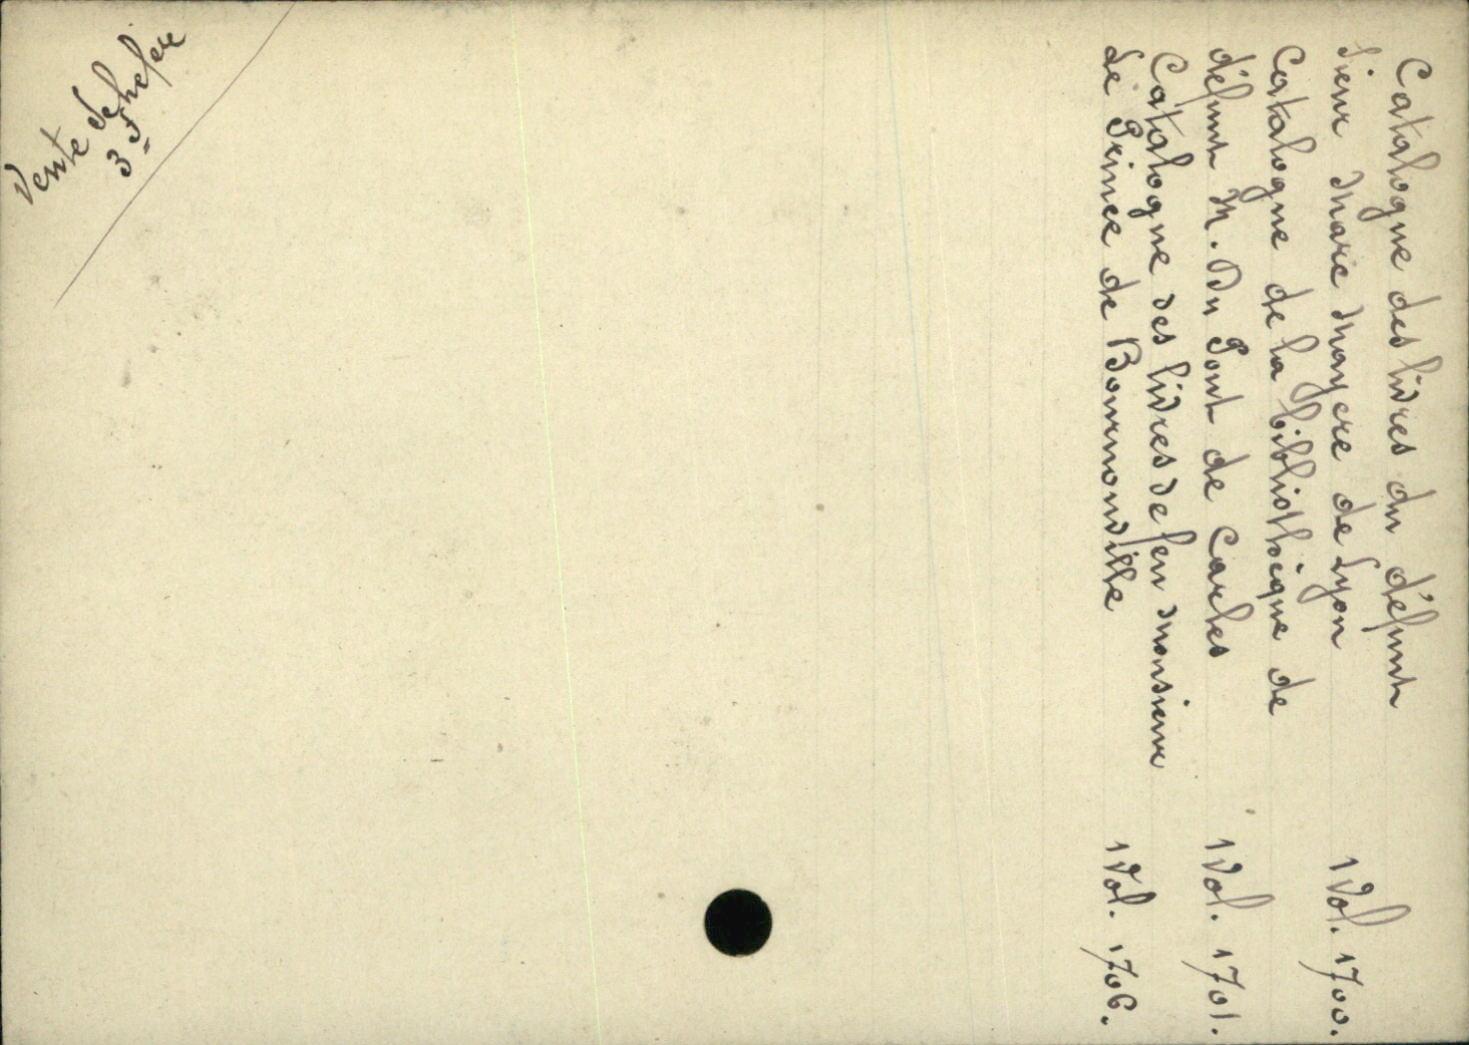 Catalogue des livres du défunt
Sieur Marc Mayere de Lyon 1 Vol. 1700.
Catalogue de la bibliothèque de
défunt M. Du Pont de Carles 1 Vol. 1701.
Catalogue des livres de feu Monsieur
Le Prince de Bournonville 1 Vol. 1706.
Vente